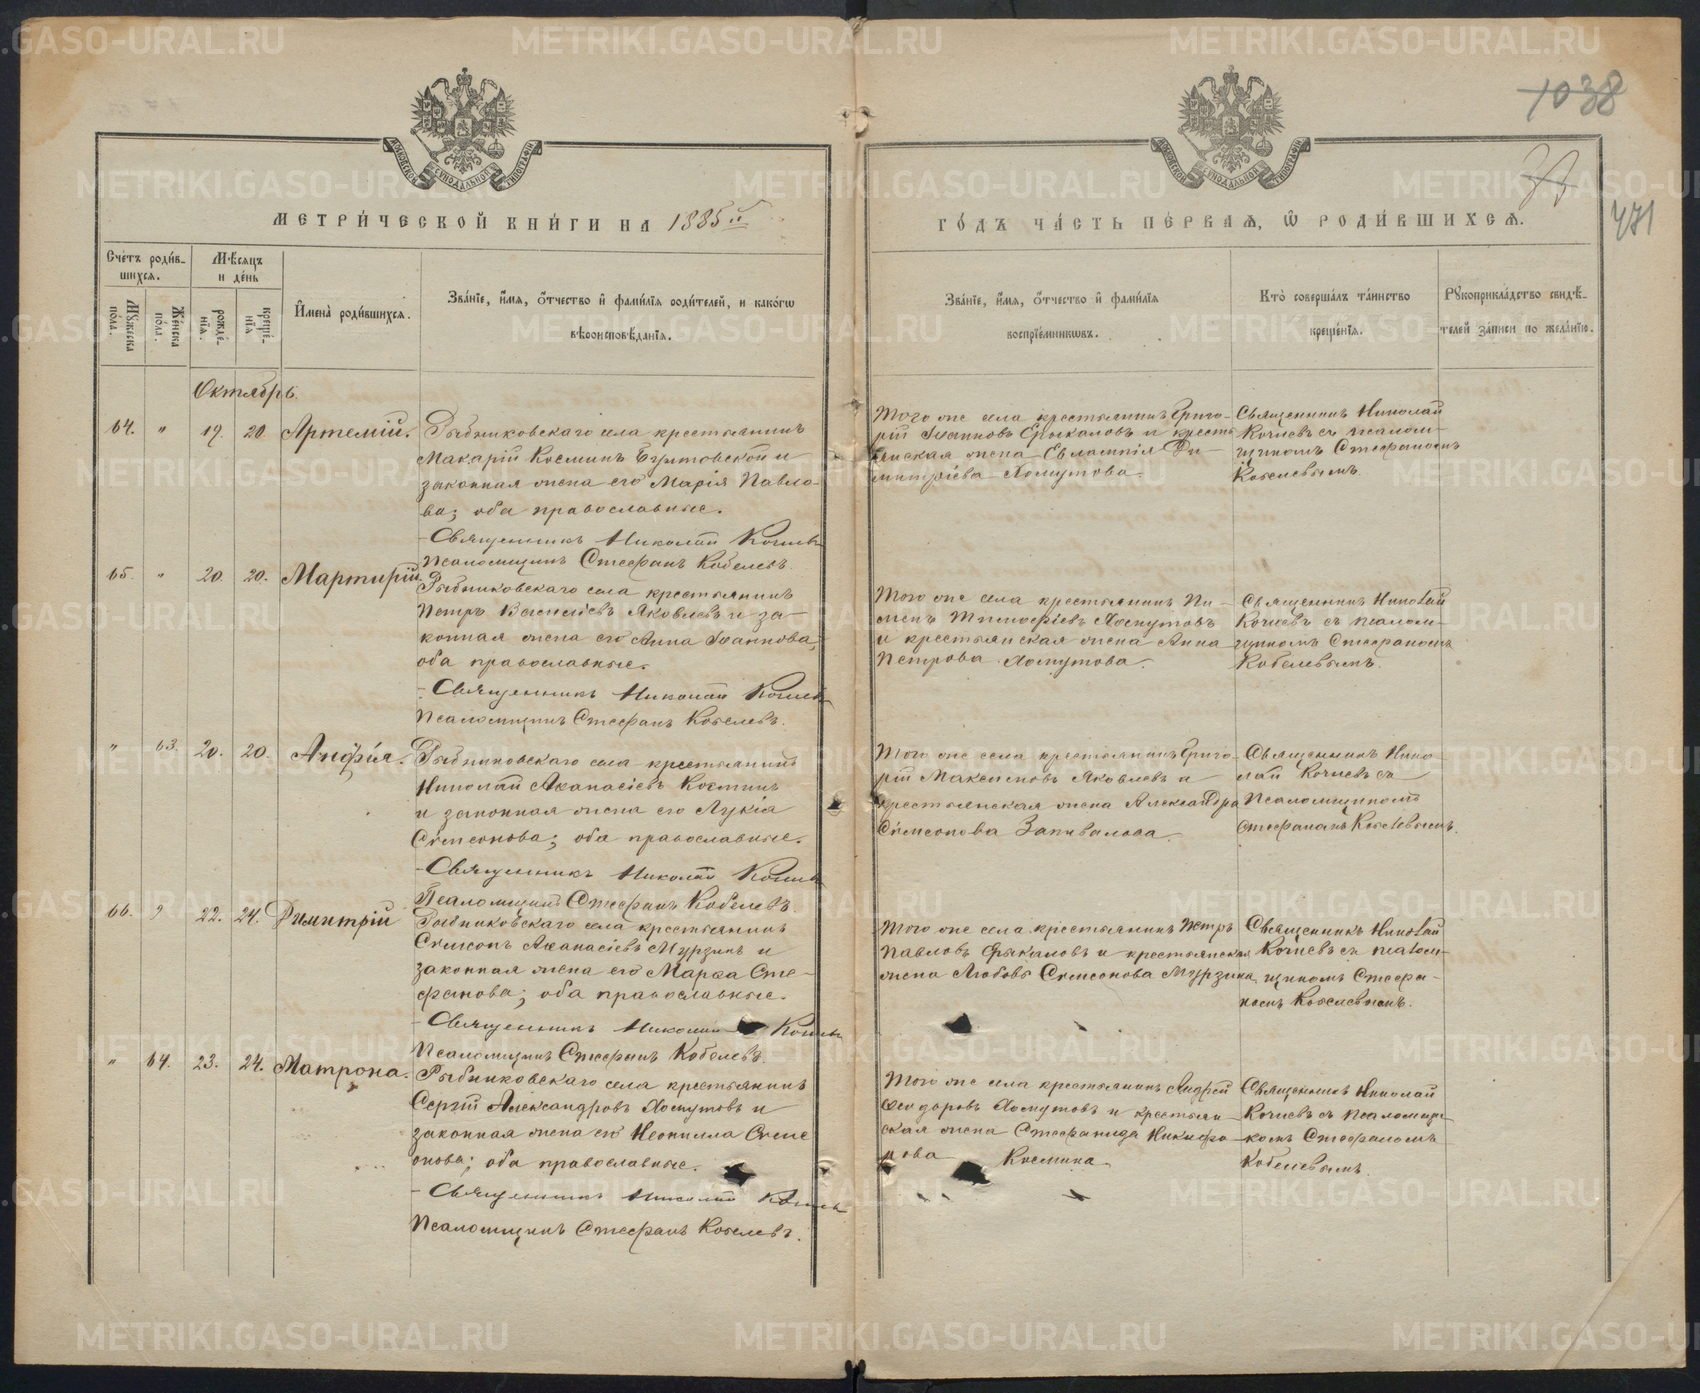 1038
471
МОСКОВСКОЙ СѴНОДАЛЬНОЙ ТИПОГРАФІИ
МОСКОВСКОЙ СѴНОДАЛЬНОЙ ТИПОГРАФІИ
МЕТРИ́ЧЕСКОЙ КНИ́ГИ НА 1885й
ГО́ДЪ ЧА́СТЬ ПЕ́РВАѦ, Ѽ РОДИ́ВШИХСѦ.
Сче́тъ роди́в-
шихсѧ.
Мѣ́сяцъ
и де́нь
Мꙋ́жеска по́ла.
Же́нска по́ла.
рожде́-
нїѧ.
креще́-
нїѧ.
И҆мена̀ роди́вшихсѧ.
Зва́нїе, и҆́мѧ, ѻ҆́тчество и҆ фами́лїѧ роди́телей, и како́гѡ
вѣроисповѣ́данїѧ.
Зва́нїе, и҆́мѧ, ѻ҆́тчество и҆ фами́лїѧ
воспрїе́мникѡвъ.
Кто̀ соверша́лъ та́инство
креще́нїѧ.
Рꙋкоприкла́дство свидѣ́-
телей за́писи по жела́нїю.
Октябрь.
64. " 19. 20. Артемій.
Рыбниковскаго села крестьянинъ
Макарій Косминъ
законная жена его Марія Павло-
ва; оба православные.
Священникъ Николай Кочневъ
Псаломщикъ Стефанъ Кобелевъ.
Того же села крестьянинъ Григо-
рій Іоанновъ Ерыкаловъ и кресть
янская жена Евлампія Ди-
митріева Хомутова.
Священникъ Николай
Кочневъ съ псалом-
щикомъ Стефаномъ
Кобелевымъ.
65. " 20. 20. Мартирій.
Рыбниковскаго села крестьянинъ
Петръ Василіевъ Яковлевъ и за-
конная жена его Анна Іоаннова,
оба православные.
Священникъ Николай Кочневъ
Псаломщикъ Стефанъ Кобелевъ.
Того же села крестьянинъ Пи-
менъ Тимофѣевъ Хомутовъ
и крестьянская жена Анна
Петрова Хомутова.
Священникъ Николай
Кочневъ съ псалом-
щикомъ Стефаномъ
Кобелевымъ.
" 63. 20. 20. Анфія.
Рыбниковскаго села крестьянинъ
Николай Аѳанасіевъ Косминъ
и законная жена его Лукіа
Сѷмеонова; оба православные.
Священникъ Николай Кочневъ
Псаломщикъ Стефанъ Кобелевъ.
Того же села крестьянинъ Григо-
рій Максимовъ Яковлевъ и
крестьянская жена Александра
Сѷмеонова Запивалова.
Священникъ Нико-
лай Кочневъ съ
Псаломщикомъ
Стефаномъ Кобелевымъ.
66. " 22. 24. Димитрій
Рыбниковскаго села крестьянинъ
Сѷмеонъ Аѳанасіевъ Мурзинъ и
законная жена его Марѳа Сте-
фанова; оба православные.
Священникъ Николай Кочневъ
Псаломщикъ Стефанъ Кобелевъ.
Того же села крестьянинъ Петръ
Павловъ Ерыкаловъ и крестьянская
жена Любовь Сѷмеонова Мурзина.
Священникъ Николай
Кочневъ съ псалом-
щикомъ Стефа-
номъ Кобелевымъ.
" 64. 23. 24. Матрона.
Рыбниковскаго села крестьянинъ
Сергій Александровъ Хомутовъ и
законная жена его Неонилла Сѷме
онова; оба православные.
Священникъ Николай Кочневъ
Псаломщикъ Стефанъ Кобелевъ.
Того же села крестьянинъ Андрей
Ѳеодоровъ Хомутовъ и крестьян-
ская жена Стефанида Никифо-
рова Космина.
Священникъ Николай
Кочневъ съ Псаломщи-
комъ Стефаномъ
Кобелевымъ.
METRIKI.GASO-URAL.RU